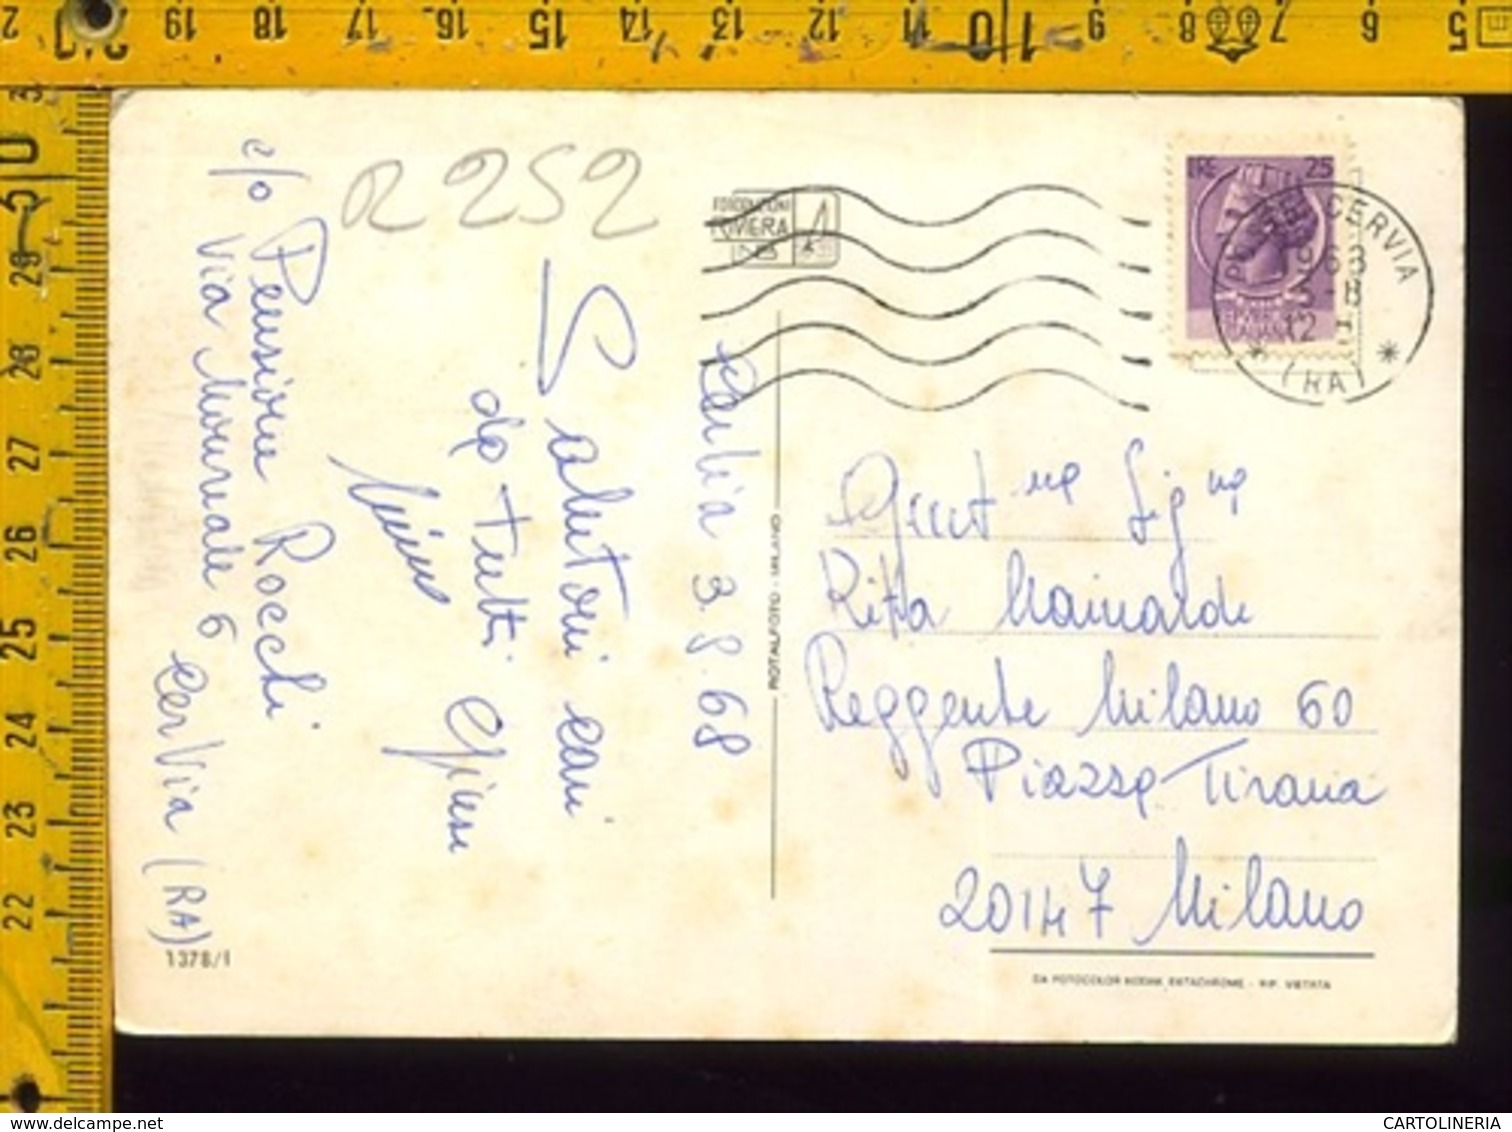 R 252
FOTOEDIZIONI
RIVIERA
LIRE 25
CERVIA
968
(RA)
Cervia 3.8.68
Salutoni cari
da tutti Giusi
c/o Pensione Rocchi
Via Murnale 6
Cervia (RA)
1378/I
ROTALFOTO - MILANO
Gent.ma Sig.na
Rita Mainaldi
Reggente Milano 60
Piazza Tirana
20147 Milano
DA FOTOCOLOR KODAK EKTACHROME - RIP. VIETATA
2 20 19 18 17 16 15 14 13 12 11 10 9 8 7 6 5
3 30 29 28 27 26 25 24 23 22
www.delcampe.net
CARTOLINERIA